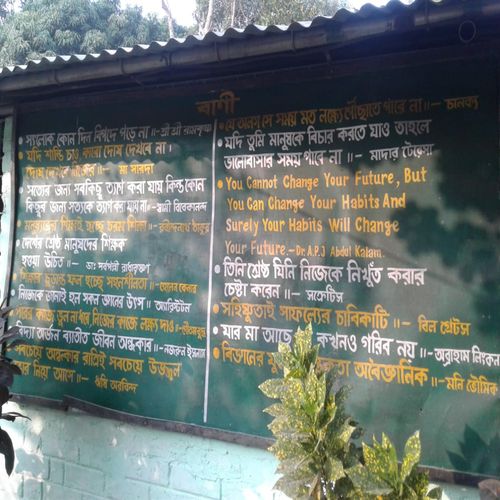 বাণী
সৎলোক কোন দিন বিপদে পড়ে না॥- শ্রী শ্রী রামকৃষ্ণ
যদি শান্তি চাও কারো দোষ দেখবে না।
দোষ দেখবে নিজের॥- মা সারদা
সত্যের জন্য সবকিছু ত্যাগ করা যায় কিন্তু কোন
কিছুর জন্য সত্যকে ত্যাগ করা যায় না-স্বামী বিবেকানন্দ
শিক্ষা॥-রবীন্দ্রনাথ ঠাকুর
দেশের শ্রেষ্ঠ মানুষদের শিক্ষক
হওয়া উচিত॥- ডাঃ সর্বপল্লী রাধাকৃষ্ণণ
শিক্ষার চূড়ান্ত ফল হচ্ছে সহনশীলতা॥-হেলেন কেলার
নিজেকে জানাই হল সকল জ্ঞানের উৎস॥-অ্যারিস্টটল
পরের কাজে ভুল না ধরে, নিজের কাজে লক্ষ্য দাও॥-গৌতম বুদ্ধ
বিদ্যা অর্জন ব্যাতীত জীবন অন্ধকার॥-নজরুল ইসলাম
সবচেয়ে অন্ধকার রাত্রিই সবচেয়ে উজ্জ্বল
নিয়া আসে॥- ঋষি অরবিন্দ
যে অলস সে সময় মত লক্ষ্যে পৌঁছাতে পারে না॥- চানক্য
যদি তুমি মানুষকে বিচার করতে যাও তাহলে
ভালোবাসার সময় পাবে না॥- মাদার টেরেজা
You Cannot Change Your Future, But
You Can Change Your Habits And
Surely Your Habits Will Change
Your Future-Dr. A.P.J Abdul Kalam.
তিনি শ্রেষ্ঠ যিনি নিজেকে নিখুঁত করার
চেষ্টা করেন॥- সক্রেটিস
সহিষ্ণুতাই সাফল্যের চাবিকাটি॥- বিল গেটস
যার মা আছে কখনও গরিব নয়॥-অব্রাহাম লিংকন
বিজ্ঞানের অবৈজ্ঞানিক॥-মনি ভৌমিক